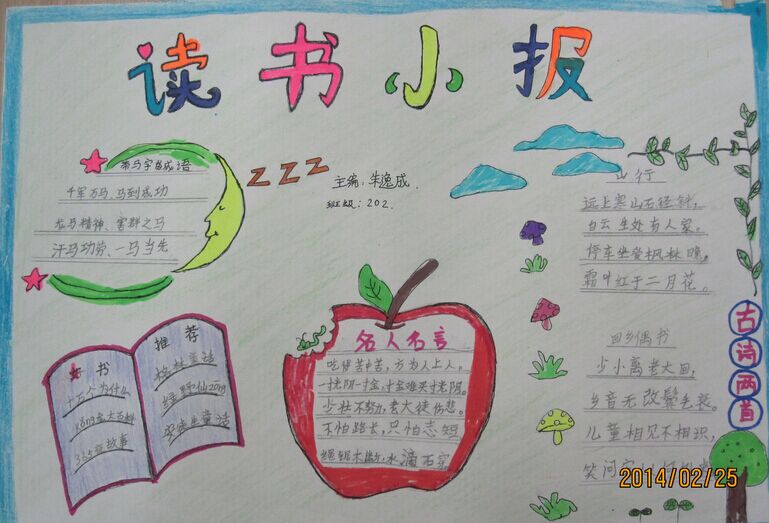 读书小报
带马字的成语
千军万马、马到成功
龙马精神、害群之马
汗马功劳、一马当先
zzz
主编:朱逸成.
班级:202.
山行
远上寒山石径斜,
白云生处有人家。
停车坐爱枫林晚,
霜叶红于二月花。
回乡偶书
少小离老大回,
乡音无改鬓毛衰。
儿童相见不相识,
笑问客
古诗两首
好书
十万个为什么
恐龙大百科
365夜故事
推荐
格林童话
绿野仙zong
安徒生童话
名人名言
吃得苦中苦,方为人上人。
一寸光阴一寸金,寸金难买寸光阴。
少壮不努力,老大徒伤悲。
不怕路长,只怕志短
绳锯木断,水滴石穿
2014/02/25